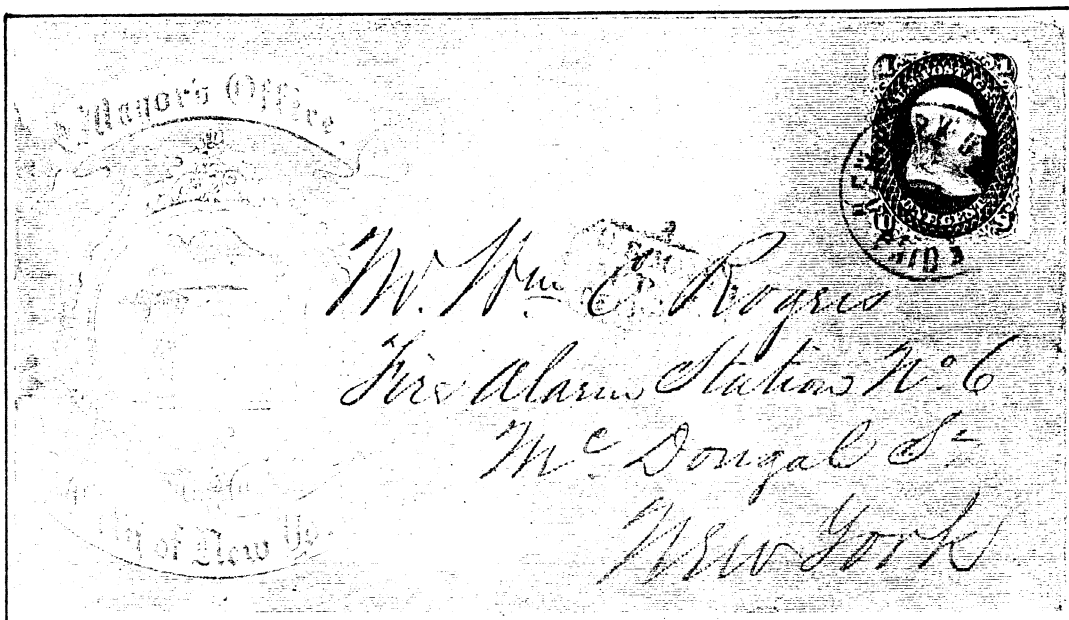 Mayor's Office.
City of New Yo
Mr. Wm C. Rogers
Fire Alarm Station No. 6
Mc Dougal St
New York